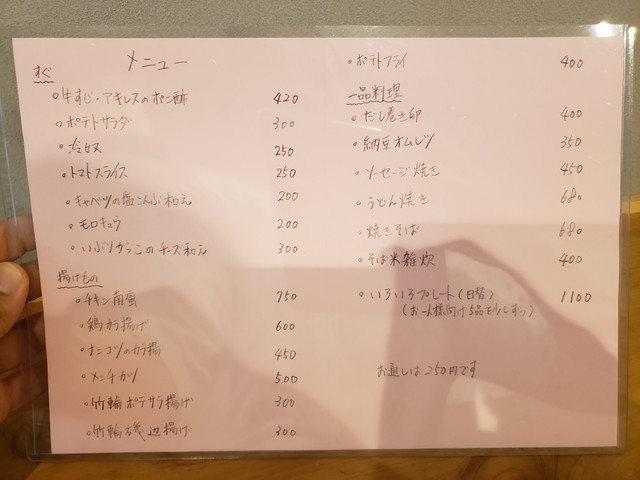 メニュー
すぐ
牛すじ・アキレスのポン酢 420
ポテトサラダ 300
冷奴 250
トマトスライス 250
キャベツの塩こんぶ和え 200
モロキュウ 200
いぶりがっこのチーズ和え 300
揚げもの
チキン南蛮 750
鶏カラ揚げ 600
ナンコツのカラ揚 450
メンチカツ 500
竹輪ポテサラ揚げ 300
竹輪磯辺揚げ 300
ポテトフライ 400
一品料理
だし巻き卵 400
納豆オムレツ 350
ソーセージ焼き 450
うどん焼き 680
焼きそば 680
そば米雑炊 400
いろいろプレート(日替) 1100
(お一人様向け5品を少しずつ)
お通しは250円です